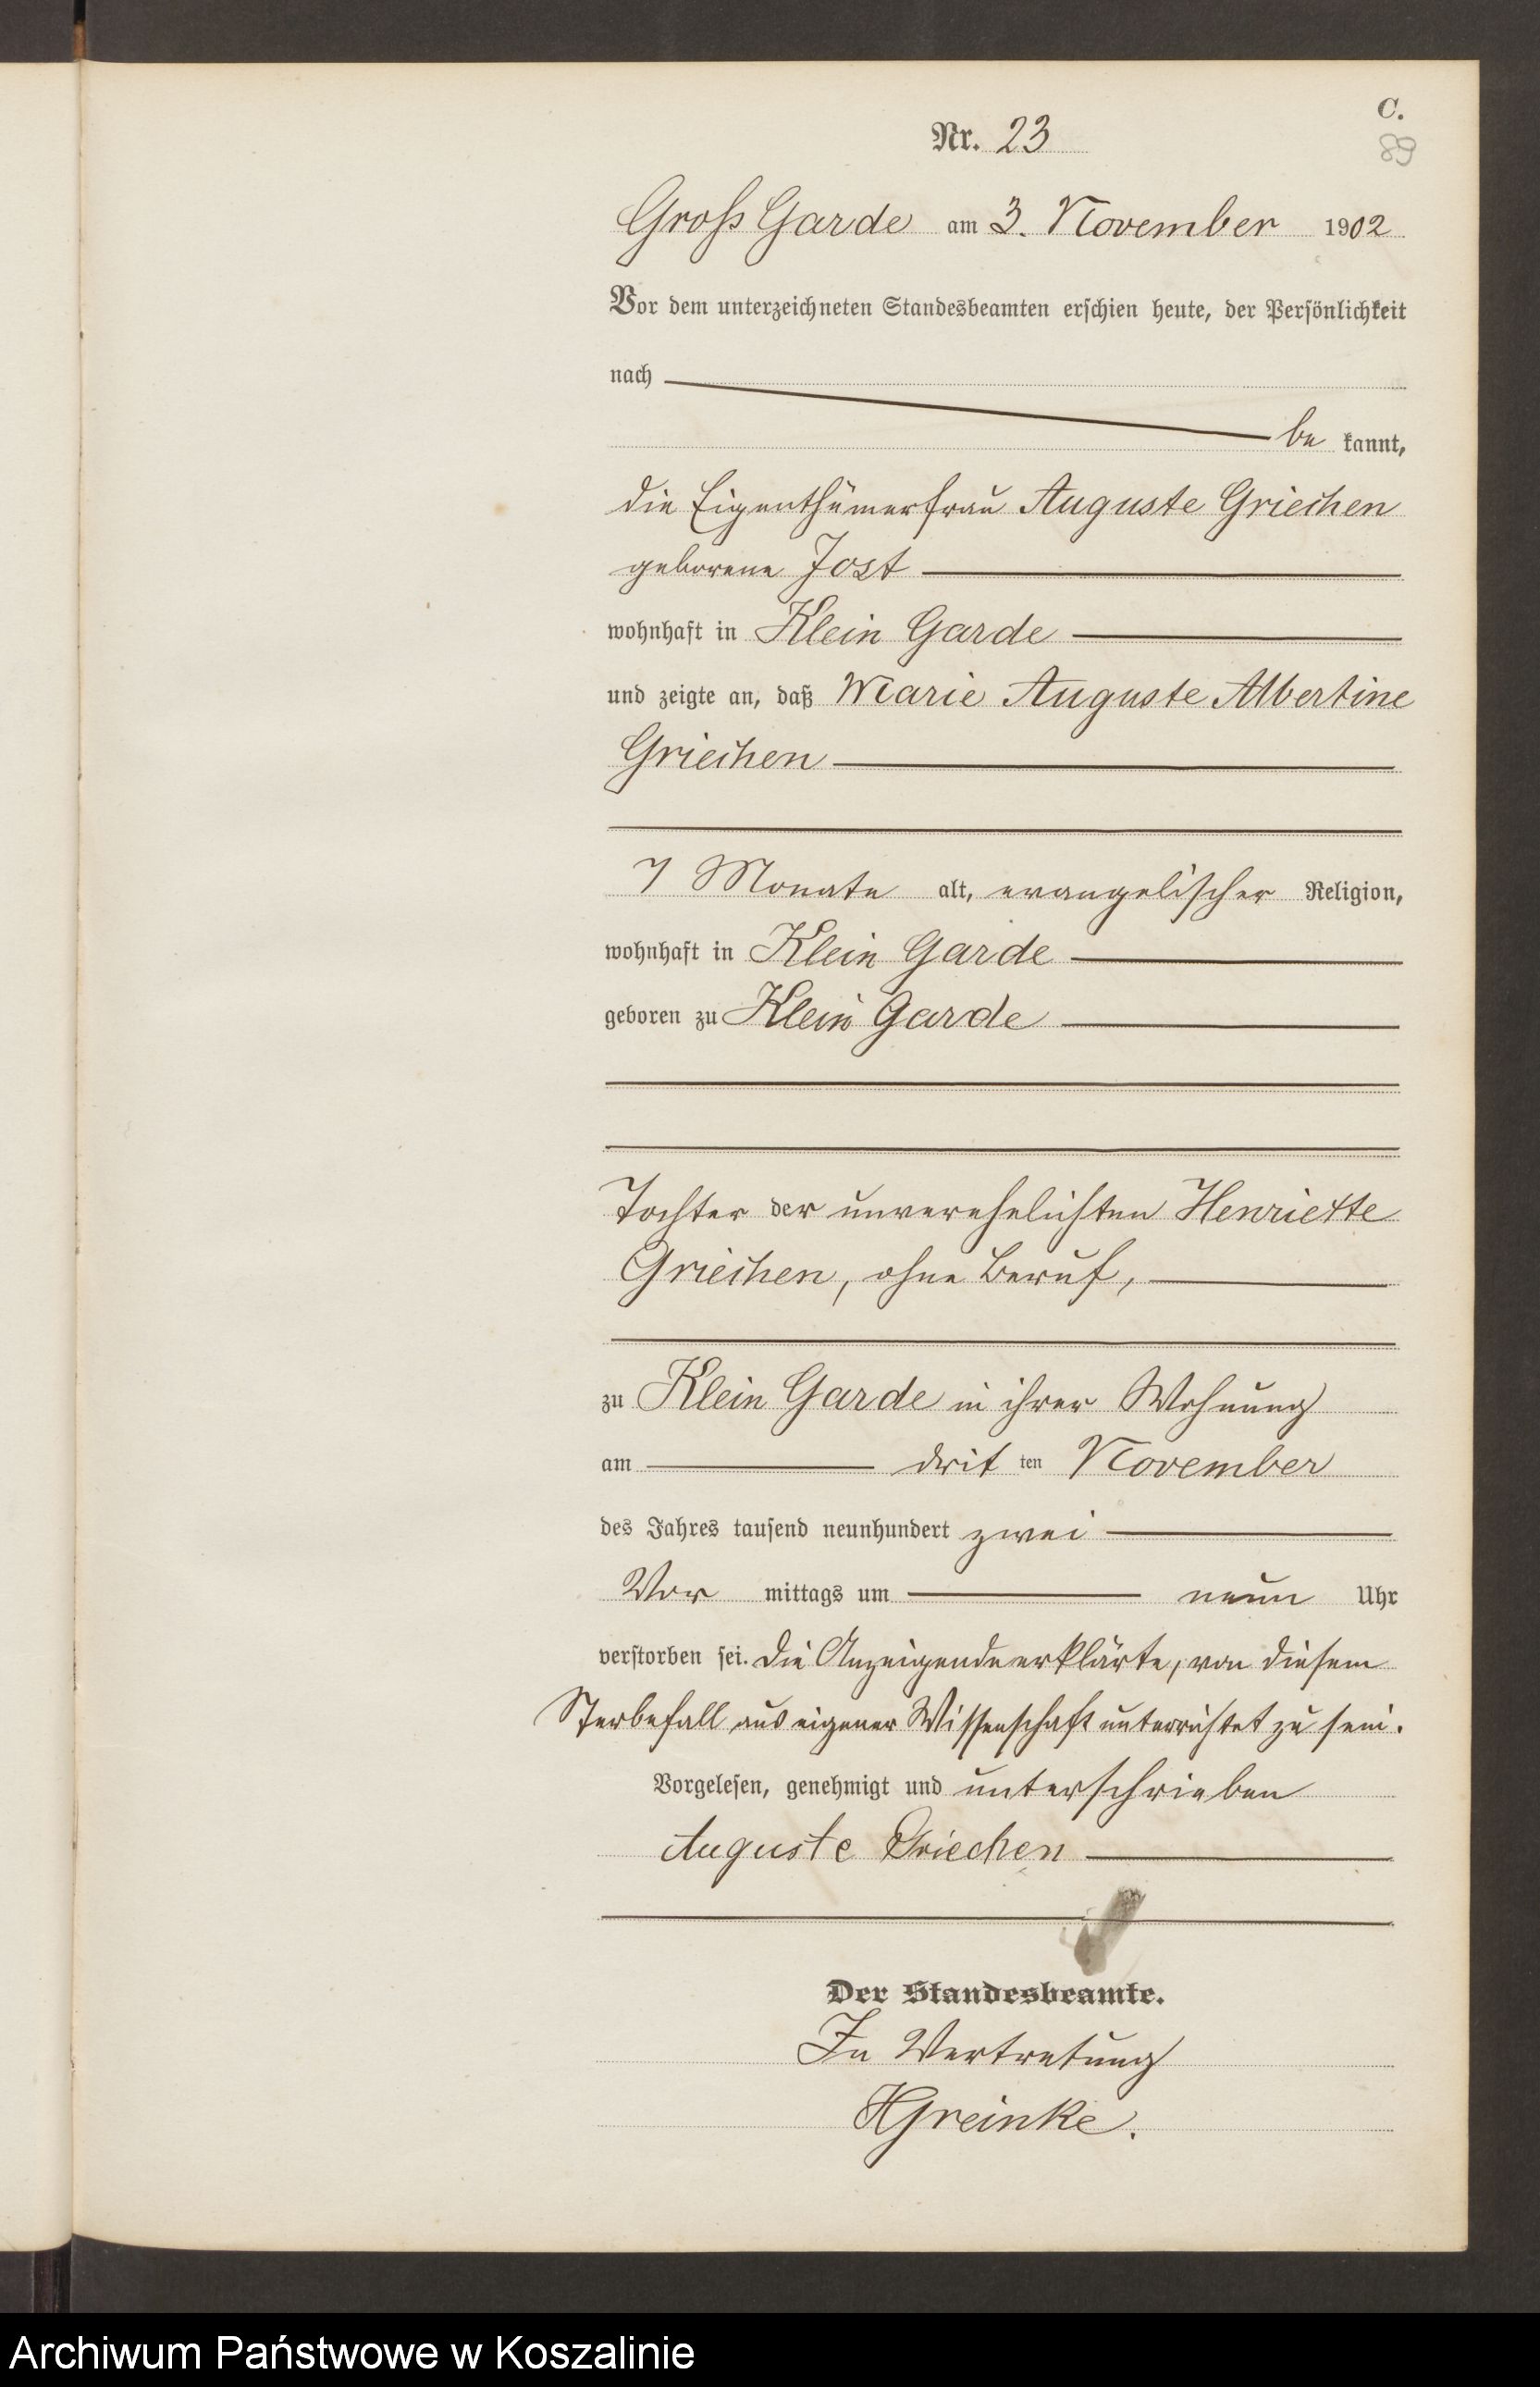 C.
Nr. 23
89
Groß Garde am 3. November 1902
Vor dem unterzeichneten Standesbeamten erschien heute, der Persönlichkeit
nach
be kannt,
die Eigenthümerfrau Auguste Griechen
geborene Jost
wohnhaft in Klein Garde
und zeigte an, daß Marie Auguste Albertine
Griechen
7 Monate alt, evangelischer Religion,
wohnhaft in Klein Garde
geboren zu Klein Garde
Tochter der unverehelichten Henriette
Griechen, ohne Beruf,
zu Klein Garde in ihrer Wohnung
am drit ten November
des Jahres tausend neunhundert zwei
Vor mittags um neun Uhr
verstorben sei. Die Anzeigende erklärte, von diesem
Sterbefall aus eigener Wissenschaft unterrichtet zu sein.
Vorgelesen, genehmigt und unterschrieben
Auguste Griechen
Der Standesbeamte.
In Vertretung
HGreinke.
Archiwum Państwowe w Koszalinie